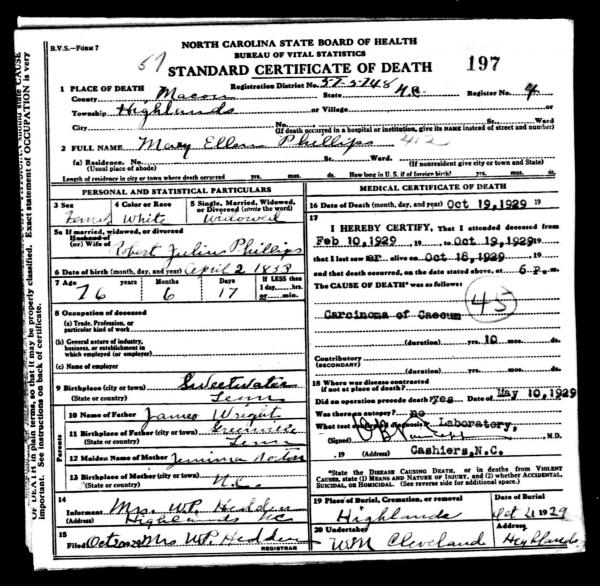 NORTH CAROLINA STATE BOARD OF HEALTH
BUREAU OF VITAL STATISTICS
B.V.S.—FORM 7
STANDARD CERTIFICATE OF DEATH
197
1 PLACE OF DEATH
Registration District No. 57-5748
County Macon State N.C. Register No. 4
Township Highlands or Village
City No. St. Ward
(If death occurred in a hospital or institution, give its NAME instead of street and number)
2 FULL NAME Mary Ellen Phillips 412
(a) Residence. No. St. Ward.
(Usual place of abode) (If nonresident give city or town and State)
Length of residence in city or town where death occurred yrs. mos. ds. How long in U. S. if of foreign birth? yrs. mos. ds.
PERSONAL AND STATISTICAL PARTICULARS
3 Sex 4 Color or Race 5 Single, Married, Widowed, or Divorced (write the word)
Female White Widowed
5a If married, widowed, or divorced
Husband of
(or) Wife of Robert Julius Phillips
6 Date of birth (month, day, and year) April 2 1853
7 Age years Months Days If LESS than 1 day, hrs. or min.
76 6 17
8 Occupation of deceased
(a) Trade, Profession, or particular kind of work
(b) General nature of industry, business, or establishment in which employed (or employer)
(c) Name of employer
9 Birthplace (city or town) Sweetwater
(State or country) Tenn
Parents
10 Name of Father James Wright
11 Birthplace of Father (city or town)
(State or country) Tenn
12 Maiden Name of Mother Jemima
13 Birthplace of Mother (city or town)
(State or country) N.C.
14
Informant Mrs. W.P. Hedden
(Address) Highlands NC
15
Filed Mrs W.P. Hedden
REGISTRAR
MEDICAL CERTIFICATE OF DEATH
16 Date of Death (month, day, and year) Oct 19,1929 19
17
I HEREBY CERTIFY, That I attended deceased from
Feb 10,1929 to Oct 19,1929 19
that I last saw er alive on Oct 18,1929 19
and that death occurred, on the date stated above, at 6 P. m.
The CAUSE OF DEATH* was as follows:
45
Carcinoma of Caecum
(duration) yrs. 10 mos. ds.
Contributory
(SECONDARY)
(duration) yrs. mos. ds.
18 Where was disease contracted
if not at place of death?
Did an operation precede death? yes Date of May 10,1929
Was there an autopsy? no
What test confirmed diagnosis? Laboratory,
(Signed) M.D.
, 19 (Address) Cashiers,N.C.
*State the DISEASE CAUSING DEATH, or in deaths from VIOLENT CAUSES, state (1) MEANS AND NATURE OF INJURY, and (2) whether ACCIDENTAL, SUICIDAL, OR HOMICIDAL. (See reverse side for additional space.)
19 Place of Burial, Cremation, or removal Date of Burial
Highlands Oct 21 1929
20 Undertaker Address
WM Cleveland Highlands
OF DEATH in plain terms, so that it may be properly classified. Exact statement of OCCUPATION is very
important. See instructions on back of certificate.